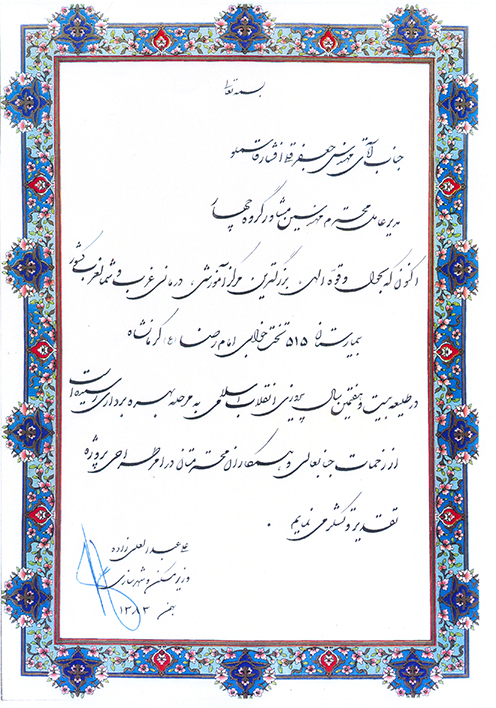 بسمه تعالی
جناب آقای مهندس جعفر افشار قاسملو
مدیرعامل محترم مهندسین مشاور گروه چهار
اکنون که بحول و قوه الهی، بزرگترین مرکز آموزشی، درمانی غرب و شمالغرب کشور
بیمارستان ۵۱۵ تختخوابی امام رضا (ع) کرمانشاه
در طلیعه بیست و هفتمین سال پیروزی انقلاب اسلامی به مرحله بهره برداری رسیده است
از زحمات جنابعالی و همکاران محترمتان در امر طراحی پروژه
تقدیر و تشکر می نمایم .
علی عبدالعلی زاده
وزیر مسکن و شهرسازی
بهمن ۱۳۸۳